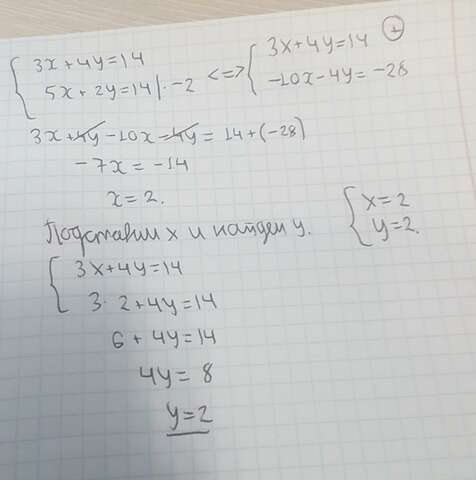 3x+4y=14
5x+2y=14|·-2 <=> 3x+4y=14 +
-10x-4y=-28
3x+4y-10x-4y=14+(-28)
-7x=-14
x=2.
Подставим x и найдем y. x=2
y=2.
3x+4y=14
3·2+4y=14
6+4y=14
4y=8
y=2